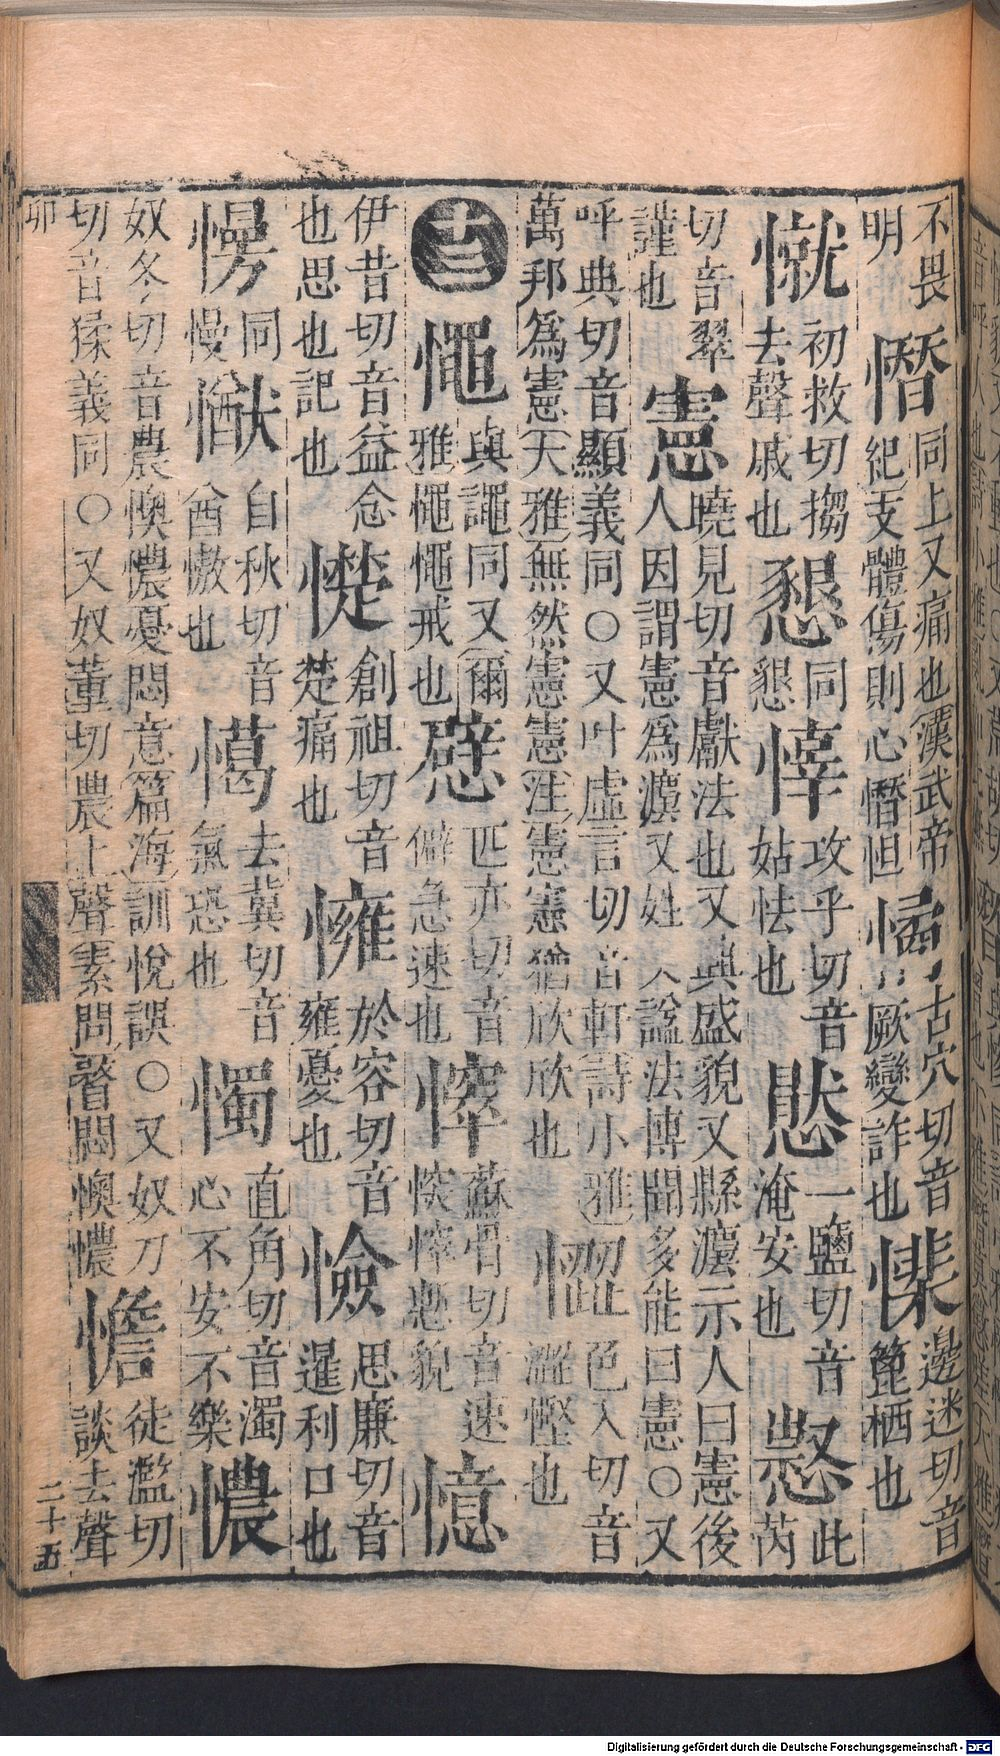 不畏明 憯 同上又痛也漢武帝紀支體傷則心憯怛 憰 古穴切音厥變詐也 邊迷切音篦栖也
憱 初救切搊去聲慼也 懇 同懇 攻乎切音姑怯也 一鹽切音淹安也 此芮
切音翠謹也 憲 曉見切音獻法也又與盛貌又縣灋示人曰憲後人因謂憲爲灋又姓 又諡法博聞多能曰憲○又
呼典切音顯義同○又叶虛言切音軒詩小雅萬邦爲憲天雅無然憲憲注憲憲猶欣欣也 色入切音澀慳也
十三 憴 與譝同又爾雅憴憴戒也 憵 匹亦切音僻急速也 蘇骨切音速愁貌 憶
伊昔切音益念也思也記也 憷 創祖切音楚痛也 於容切音雍憂也 憸 思廉切音暹利口也
同慢 自秋切音酋慠也 去冀切音氣恐也 直角切音濁心不安不樂 憹
奴冬切音農懊憹憂悶意篇海訓悅誤○又奴刀切音猱義同○又奴董切農上聲素問瞀悶懊憹 憺 徒濫切談去聲
卯
二十五
Digitalisierung gefördert durch die Deutsche Forschungsgemeinschaft - DFG